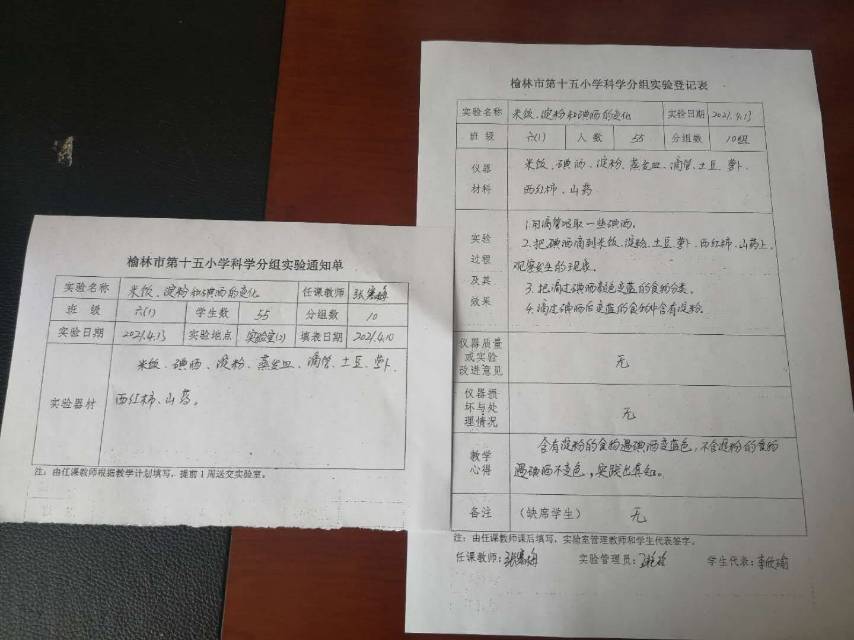 榆林市第十五小学科学分组实验通知单
实验名称 米饭、淀粉和碘酒的变化 任课教师
班 级 六(1) 学生数 55 分组数 10
实验日期 2021.4.13 实验地点 实验室(2) 填表日期 2021.4.10
实验器材
米饭、碘酒、淀粉、蒸发皿、滴管、土豆、萝卜、
西红柿、山药。
注:由任课教师根据教学计划填写,提前1周送交实验室。
榆林市第十五小学科学分组实验登记表
实验名称 米饭、淀粉和碘酒的变化 实验日期 2021.4.13
班 级 六(1) 人 数 55 分组数 10组
仪器
材料
米饭、碘酒、淀粉、蒸发皿、滴管、土豆、萝卜、
西红柿、山药
实验
过程
及其
效果
1.用滴管吸取一些碘酒。
2.把碘酒滴到米饭、淀粉、土豆、萝卜、西红柿、山药上,
观察发生的现象。
3.把滴过碘酒颜色变蓝的食物分类。
4.滴过碘酒后变蓝的食物中含有淀粉。
仪器质量
或实验
改进意见
无
仪器损
坏与处
理情况
无
教学
心得
含有淀粉的食物遇碘酒变蓝色,不含淀粉的食物
遇碘酒不变色,实践出真知。
备注 (缺席学生) 无
注:由任课教师课后填写,实验室管理教师和学生代表签字。
任课教师: 实验管理员: 学生代表: